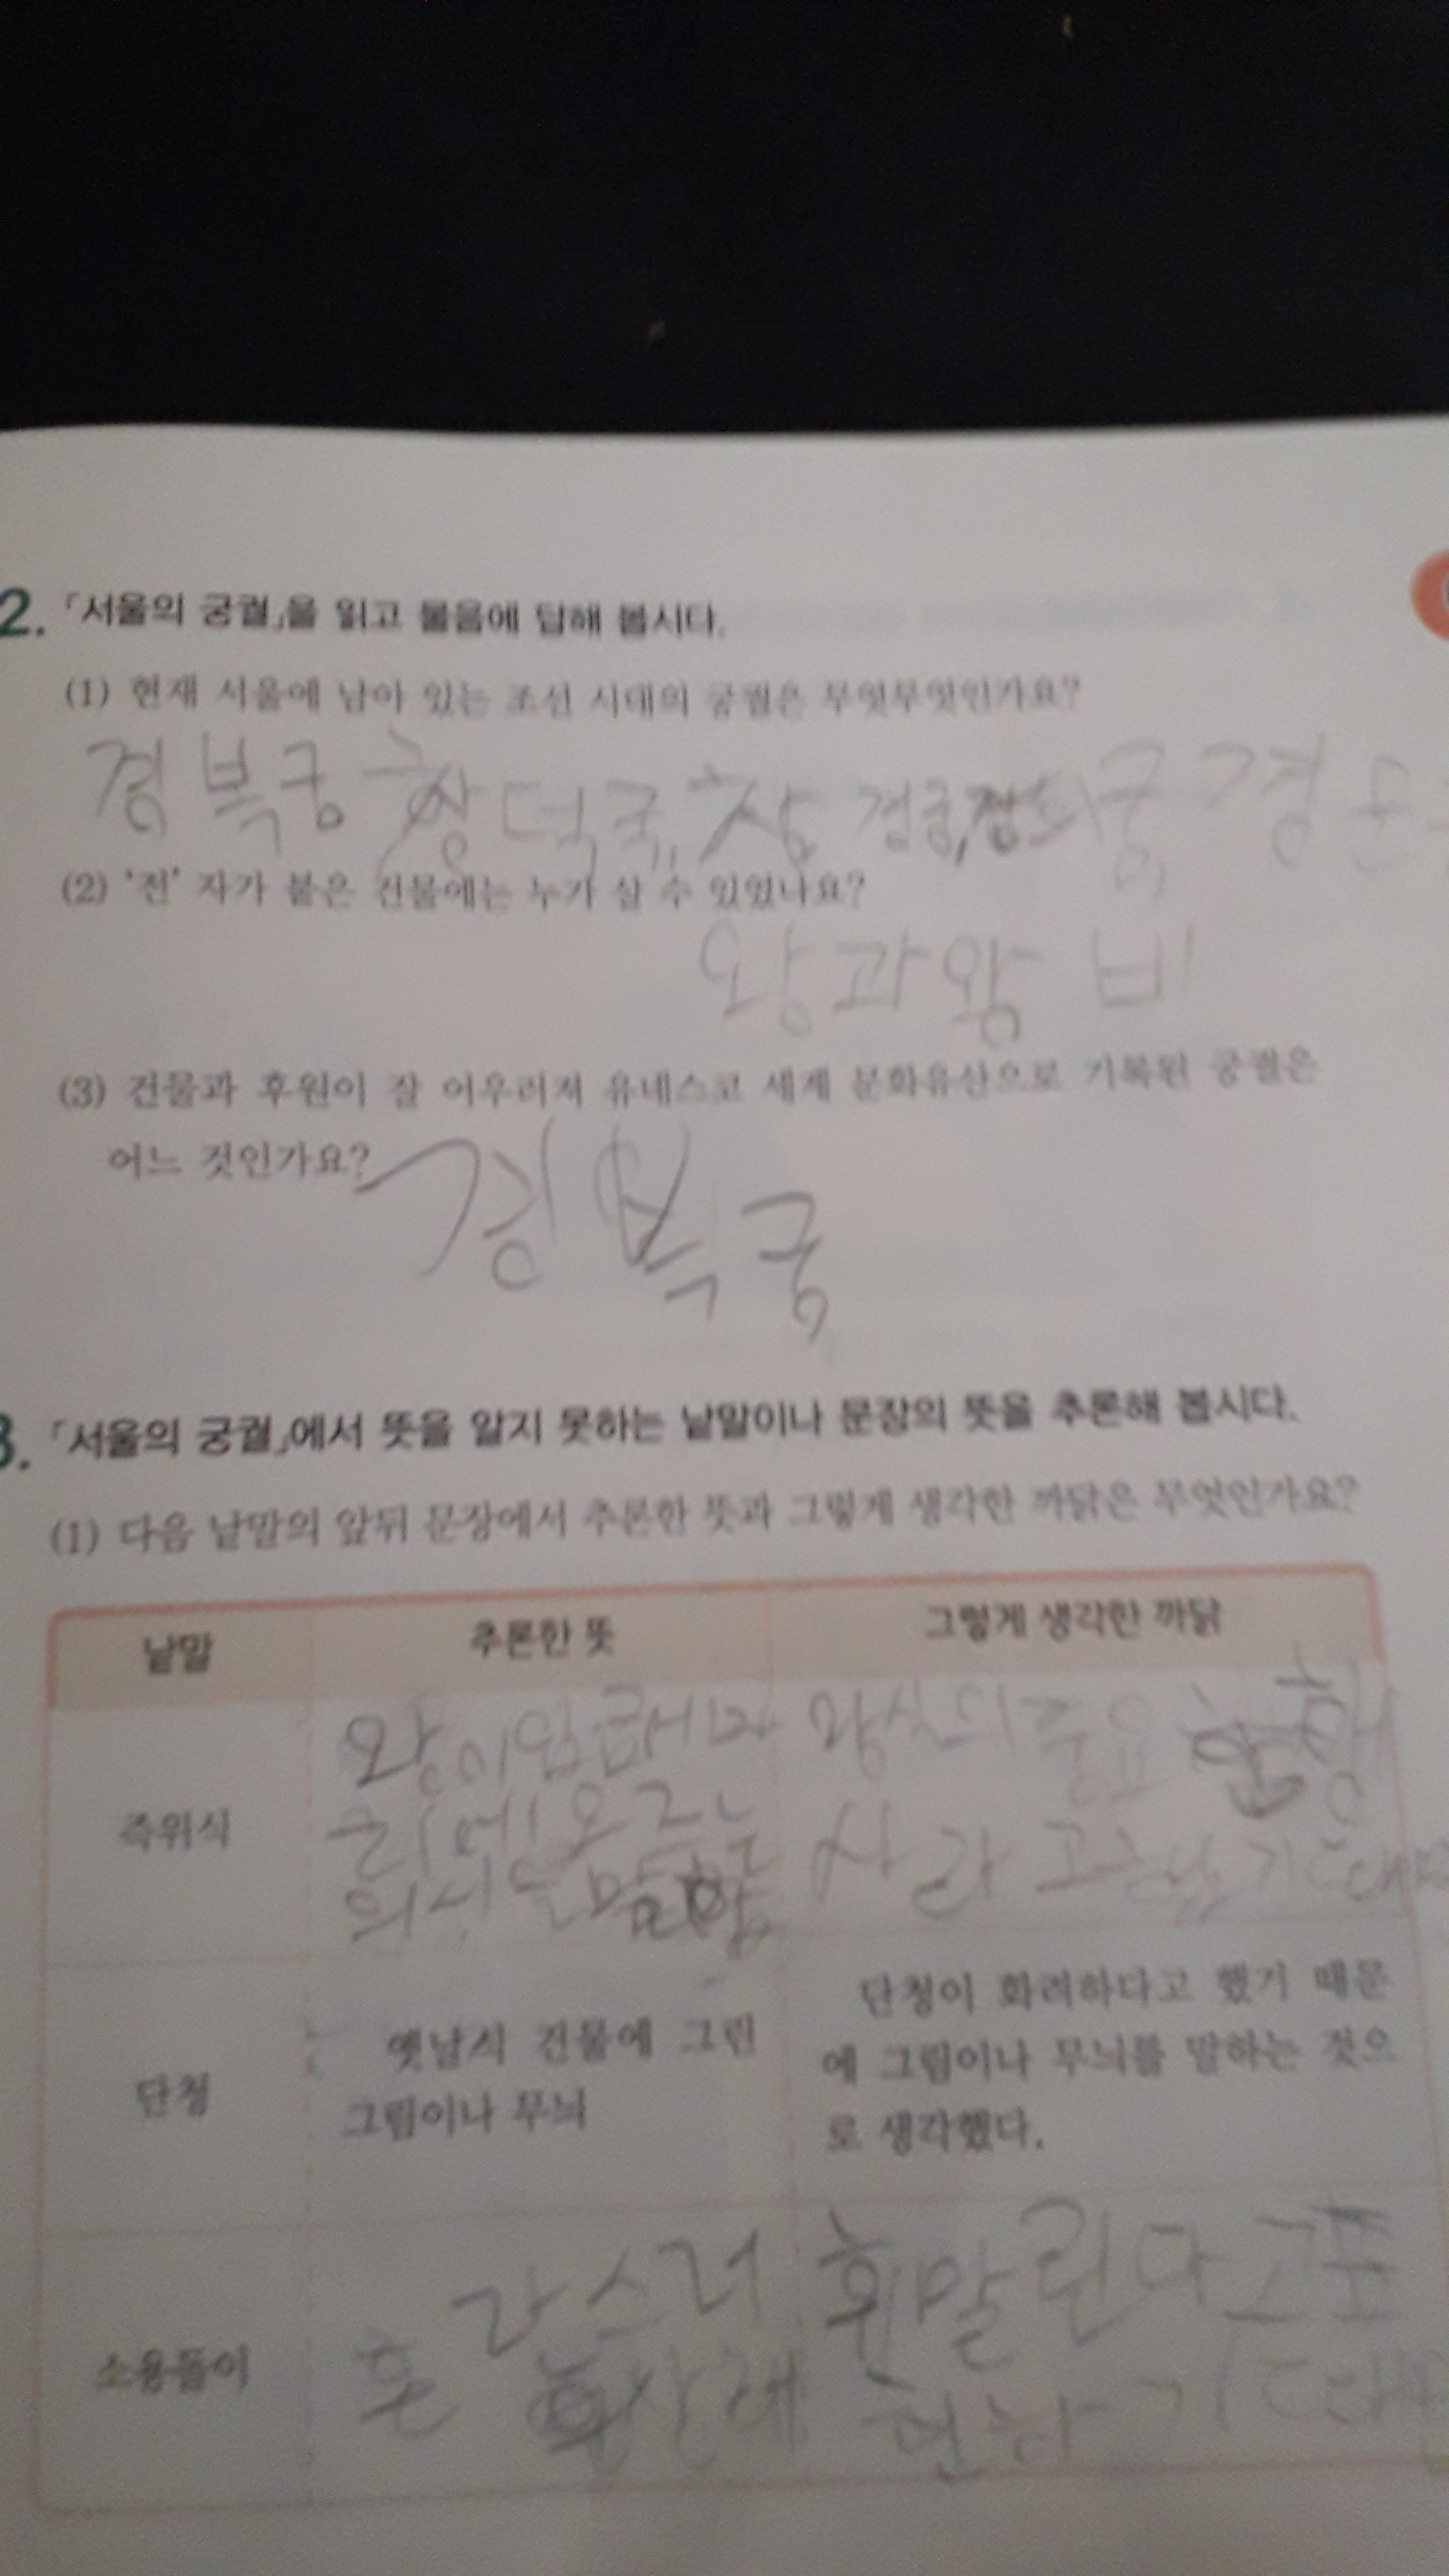 2. 「서울의 궁궐」을 읽고 물음에 답해 봅시다.
(1) 현재 서울에 남아 있는 조선 시대의 궁궐은 무엇무엇인가요?
경복궁 창덕궁, 창경궁, 경희궁 경운
(2) '전' 자가 붙은 건물에는 누가 살 수 있었나요?
왕과 왕비
(3) 건물과 후원이 잘 어우러져 유네스코 세계 문화유산으로 기록된 궁궐은
어느 것인가요?
경복궁
3. 「서울의 궁궐」에서 뜻을 알지 못하는 낱말이나 문장의 뜻을 추론해 봅시다.
(1) 다음 낱말의 앞뒤 문장에서 추론한 뜻과 그렇게 생각한 까닭은 무엇인가요?
낱말 추론한 뜻 그렇게 생각한 까닭
즉위식
왕이 왕실의 주요 행
오르는 사라고
의식을 말함
단청
옛날시 건물에 그린
그림이나 무늬
단청이 화려하다고 했기 때문
에 그림이나 무늬를 말하는 것으
로 생각했다.
소용돌이
휘말린다고 표
현하기